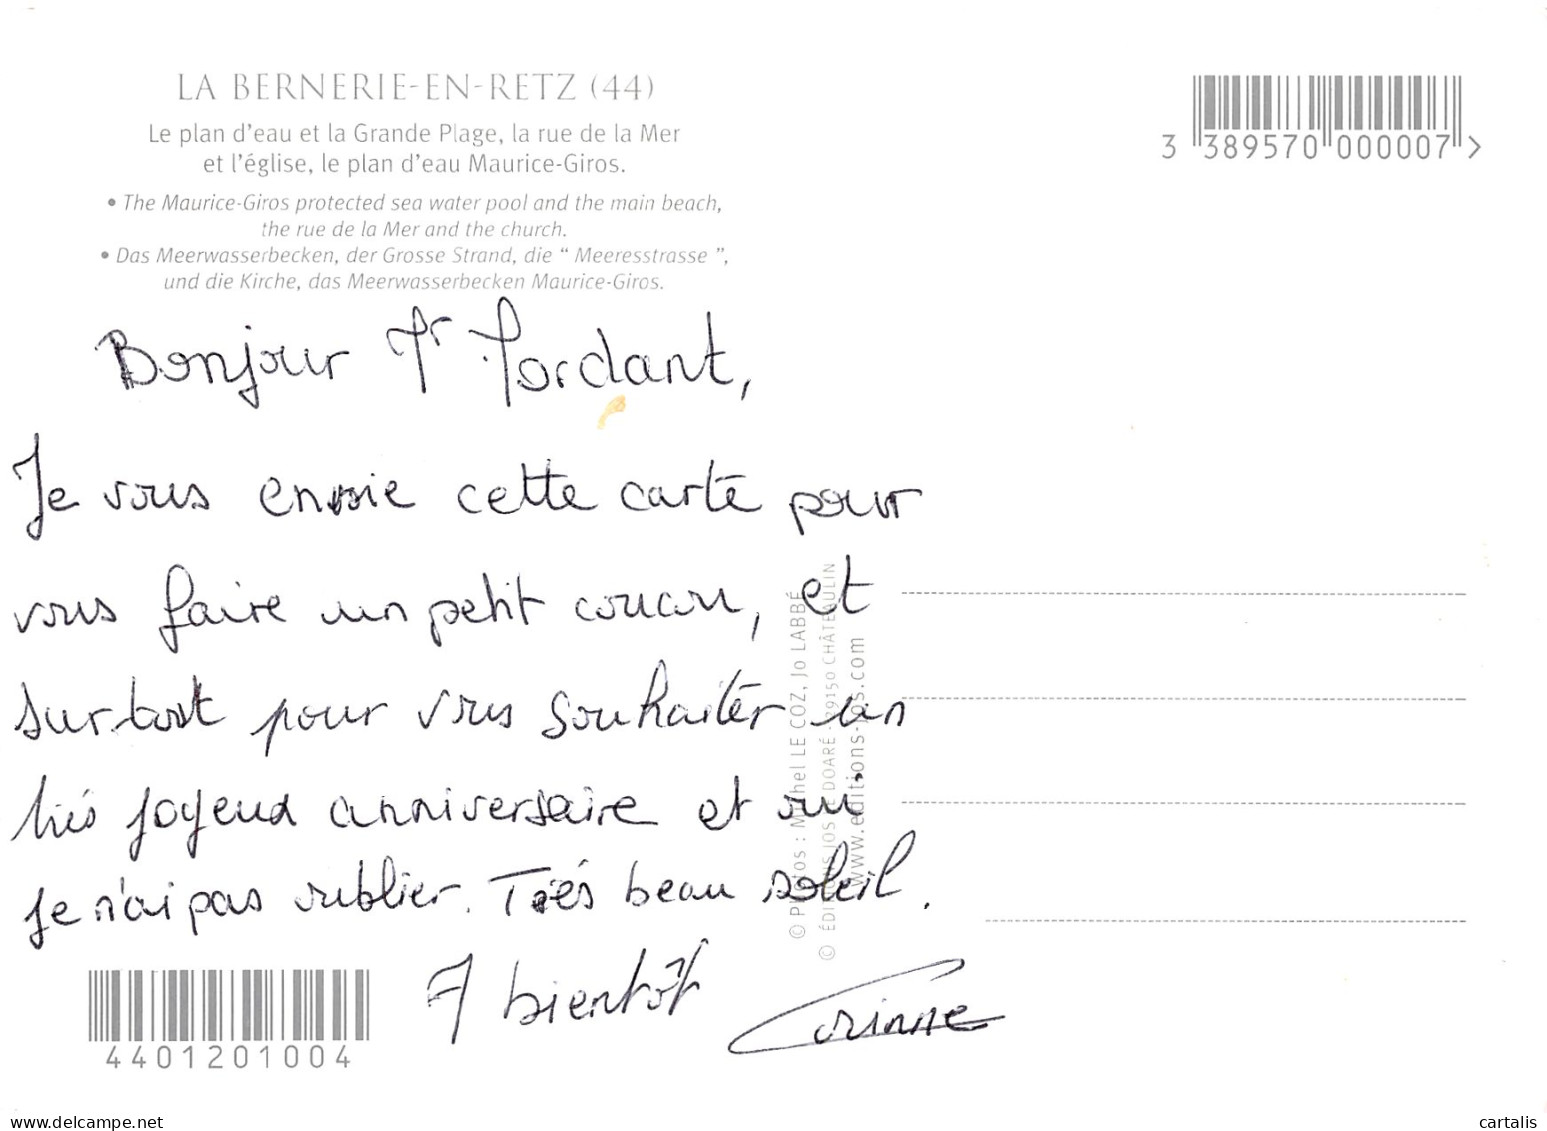 LA BERNERIE-EN-RETZ (44)
Le plan d'eau et la Grande Plage, la rue de la Mer
et l'église, le plan d'eau Maurice-Giros.
• The Maurice-Giros protected sea water pool and the main beach,
the rue de la Mer and the church.
• Das Meerwasserbecken, der Grosse Strand, die “ Meeresstrasse ”,
und die Kirche, das Meerwasserbecken Maurice-Giros.
3 389570 000007 >
Bonjour Mr Mordant,
Je vous envoie cette carte pour
vous faire un petit coucou, et
surtout pour vous souhaiter un
très joyeux anniversaire et oui
je n'ai pas oublier. Très beau soleil.
A bientôt
Corinne
© Photos : Michel LE COZ, Jo LABBÉ
© ÉDITIONS JOS LE DOARÉ - 29150 CHÂTEAULIN
www.editions-jos.com
4401201004
delcampe.net
cartalis